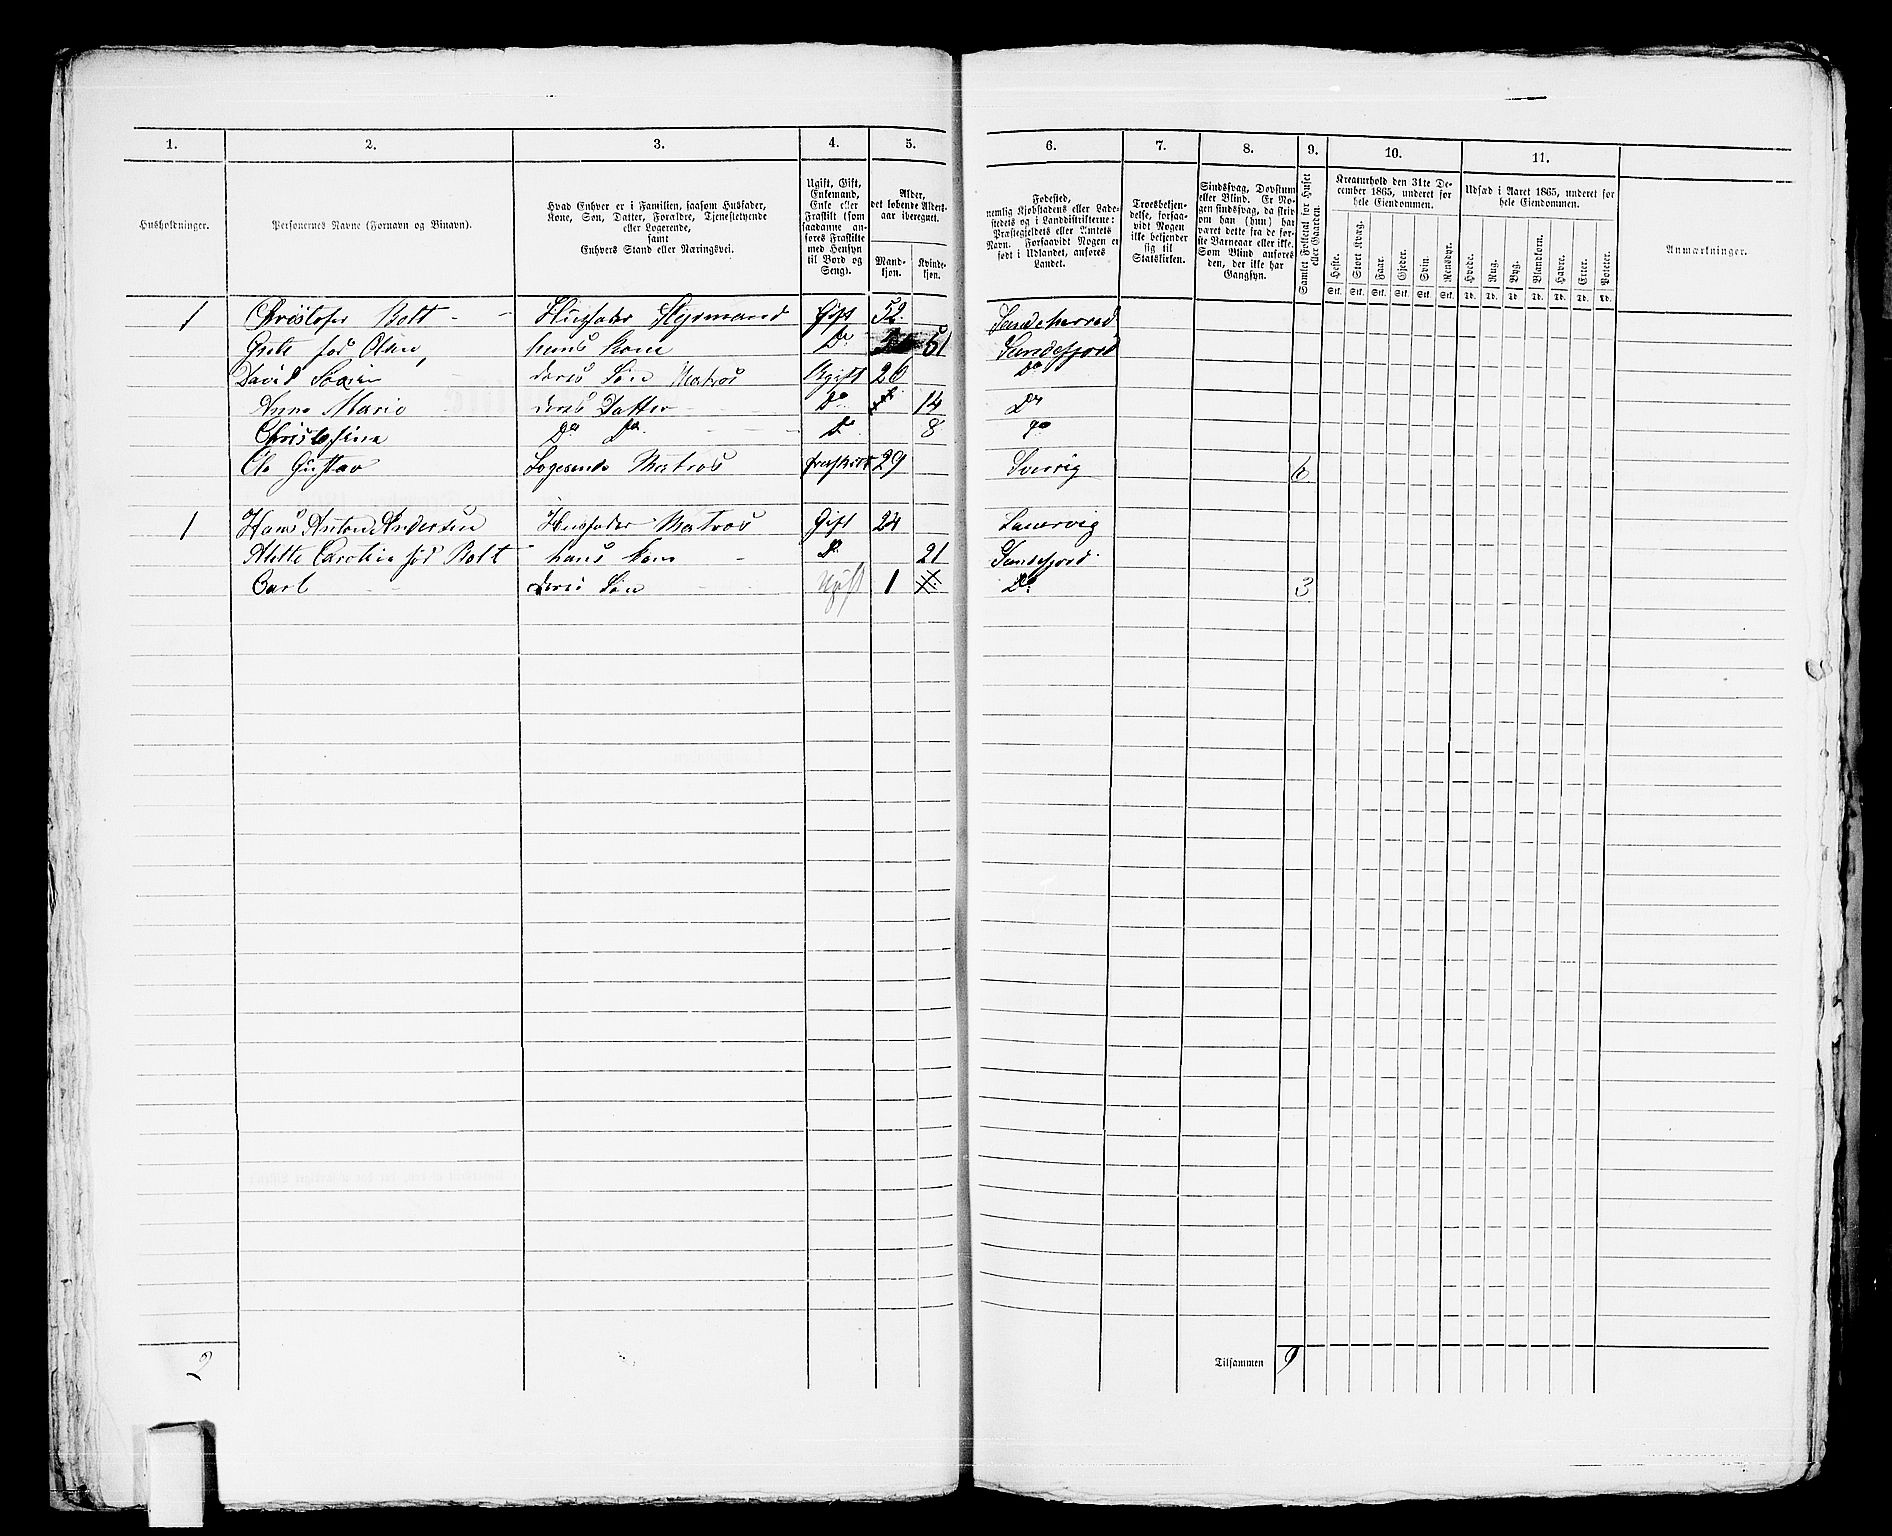 1. 2. 3. 4. 5. 6. 7. 8. 9. 10. 11.
Husholdninger.
Personernes Navne (Fornavn og Binavn).
Hvad Enhver er i Familien, saasom Husfader,
Kone, Søn, Datter, Forældre, Tjenestetyende
eller Logerende,
samt
Enhvers Stand eller Næringsvei.
Ugift, Gift,
Enkemand,
Enke eller
Fraskilt (som
saadanne an-
føres Fraskilte
med Hensyn
til Bord og
Seng).
Alder,
det løbende Alders-
aar iberegnet.
Mand-
kjøn.
Kvinde-
kjøn.
Fødested,
nemlig Kjøbstadens eller Lade-
stedets og i Landdistrikterne:
Præstegjeldets eller Amtets
Navn. Forsaavidt Nogen er
født i Udlandet, anføres
Landet.
Troesbekjen-
delse, forsaa-
vidt Nogen
ikke bekjender
sig til
Statskirken.
Sindssvag, Døvstum
eller Blind. Er No-
gen sindssvag, da skriv
om han (hun) har
været dette fra de før-
ste Barneaar eller ikke.
Som Blind anføres
den, der ikke har
Gangsyn.
Samlet Folketal for Huset
eller Gaarden.
Kreaturhold den 31te De-
cember 1865, underet for
hele Eiendommen.
Heste. Stort Kvæg. Faar. Gjeder. Svin. Rensdyr.
Stk. Stk. Stk. Stk. Stk. Stk.
Udsæd i Aaret 1865, underet for
hele Eiendommen.
Hvede. Rug. Byg. Blandkorn. Havre. Erter. Poteter.
Td. Td. Td. Td. Td. Td. Td.
Anmærkninger.
1 Christofer Bolt Husfader Styrmand Gift 52 Sandeherred
Grete fød Olsen hans Kone Do 51 Sandefjord
David deres Søn Matros Ugift 26 Do
Anne Marie deres Datter Do 14 Do
Christofine Do Do Do 8 Do
Ole Gustav Logerende Matros fraskilt 29 Sverrig 6
1 Hans Anton Andersen Husfader Matros Gift 24 Laurvig
Mette Caroline fød Bolt hans Kone Do 21 Sandefjord
Carl deres Søn Ugift 1 Do 3
2 Tilsammen 9